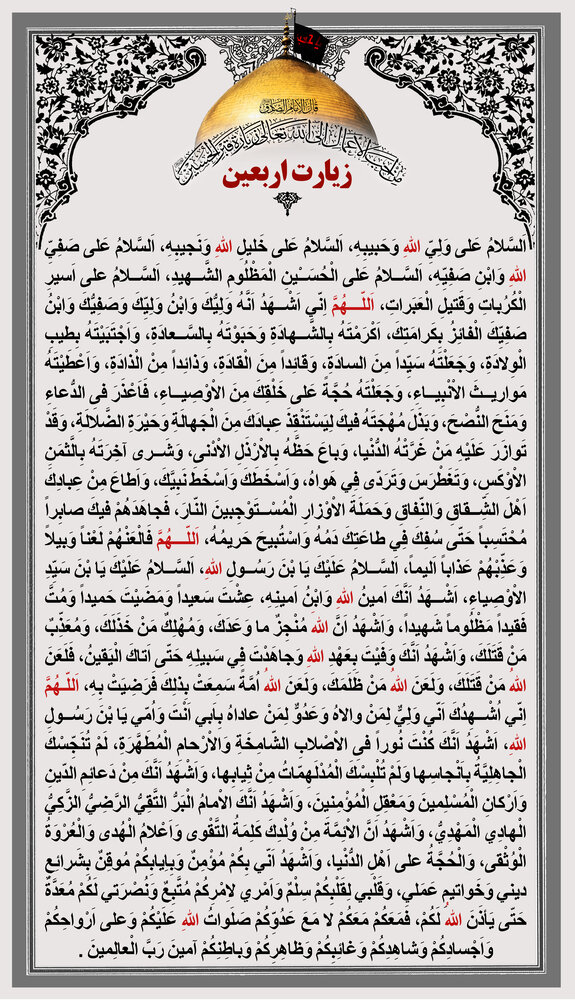 قال الإمام الصادق
من أحب الأعمال إلى الله تعالى زيارة قبر الحسين
زیارت اربعین
اَلسَّلامُ عَلى وَلِيِّ اللهِ وَحَبيبِهِ، اَلسَّلامُ عَلى خَليلِ اللهِ وَنَجيبِهِ، اَلسَّلامُ عَلى صَفِيِّ
اللهِ وَابْنِ صَفِيِّهِ، اَلسَّلامُ عَلى الْحُسَيْنِ الْمَظْلُومِ الشَّهيدِ، اَلسَّلامُ على اَسيرِ
الْكُرُباتِ وَقَتيلِ الْعَبَراتِ، اَللّهُمَّ اِنّي اَشْهَدُ اَنَّهُ وَلِيُّكَ وَابْنُ وَلِيِّكَ وَصَفِيُّكَ وَابْنُ
صَفِيِّكَ الْفائِزُ بِكَرامَتِكَ، اَكْرَمْتَهُ بِالشَّهادَةِ وَحَبَوْتَهُ بِالسَّعادَةِ، وَاَجْتَبَيْتَهُ بِطيبِ
الْوِلادَةِ، وَجَعَلْتَهُ سَيِّداً مِنَ السادَةِ، وَقائِداً مِنَ الْقادَةِ، وَذائِداً مِنْ الْذادَةِ، وَاَعْطَيْتَهُ
مَواريثَ الاْنْبِياءِ، وَجَعَلْتَهُ حُجَّةً عَلى خَلْقِكَ مِنَ الاْوْصِياءِ، فَاَعْذَرَ فى الدُّعاءِ
وَمَنَحَ النُّصْحَ، وَبَذَلَ مُهْجَتَهُ فيكَ لِيَسْتَنْقِذَ عِبادَكَ مِنَ الْجَهالَةِ وَحَيْرَةِ الضَّلالَةِ، وَقَدْ
تَوازَرَ عَلَيْهِ مَنْ غَرَّتْهُ الدُّنْيا، وَباعَ حَظَّهُ بِالاْرْذَلِ الاْدْنى، وَشَرى آخِرَتَهُ بِالثَّمَنِ
الاْوْكَسِ، وَتَغَطْرَسَ وَتَرَدّى فِي هَواهُ، وَاَسْخَطَكَ وَاَسْخَطَ نَبِيَّكَ، وَاَطاعَ مِنْ عِبادِكَ
اَهْلَ الشِّقاقِ وَالنِّفاقِ وَحَمَلَةَ الاْوْزارِ الْمُسْتَوْجِبينَ النّارَ، فَجاهَدَهُمْ فيكَ صابِراً
مُحْتَسِباً حَتّى سُفِكَ فِي طاعَتِكَ دَمُهُ وَاسْتُبيحَ حَريمُهُ، اَللّهُمَّ فَالْعَنْهُمْ لَعْناً وَبيلاً
وَعَذِّبْهُمْ عَذاباً اَليماً، اَلسَّلامُ عَلَيْكَ يَا بْنَ رَسُولِ اللهِ، اَلسَّلامُ عَلَيْكَ يَا بْنَ سَيِّدِ
الاْوْصِياءِ، اَشْهَدُ اَنَّكَ اَمينُ اللهِ وَابْنُ اَمينِهِ، عِشْتَ سَعيداً وَمَضَيْتَ حَميداً وَمُتَّ
فَقيداً مَظْلُوماً شَهيداً، وَاَشْهَدُ اَنَّ اللهَ مُنْجِزٌ ما وَعَدَكَ، وَمُهْلِكٌ مَنْ خَذَلَكَ، وَمُعَذِّبٌ
مَنْ قَتَلَكَ، وَاَشْهَدُ اَنَّكَ وَفَيْتَ بِعَهْدِ اللهِ وَجاهَدْتَ فِي سَبيلِهِ حَتّى اَتاكَ الْيَقينُ، فَلَعَنَ
اللهُ مَنْ قَتَلَكَ، وَلَعَنَ اللهُ مَنْ ظَلَمَكَ، وَلَعَنَ اللهُ اُمَّةً سَمِعَتْ بِذلِكَ فَرَضِيَتْ بِهِ، اَللّهُمَّ
اِنّي اُشْهِدُكَ اَنّي وَلِيٌّ لِمَنْ والاهُ وَعَدُوٌّ لِمَنْ عاداهُ بِاَبي اَنْتَ وَاُمّي يَا بْنَ رَسُولِ
اللهِ، اَشْهَدُ اَنَّكَ كُنْتَ نُوراً فى الاْصْلابِ الشّامِخَةِ وَالاْرْحامِ الْمُطَهَّرَةِ، لَمْ تُنَجِّسْكَ
الْجاهِلِيَّةُ بِاَنْجاسِها وَلَمْ تُلْبِسْكَ الْمُدْلَهِمّاتُ مِنْ ثِيابِها، وَاَشْهَدُ اَنَّكَ مِنْ دَعائِمِ الدّينِ
وَاَرْكانِ الْمُسْلِمينَ وَمَعْقِلِ الْمُؤْمِنينَ، وَاَشْهَدُ اَنَّكَ الاْمامُ الْبَرُّ التَّقِيُّ الرَّضِيُّ الزَّكِيُّ
الْهادِي الْمَهْدِيُّ، وَاَشْهَدُ اَنَّ الاْئِمَّةَ مِنْ وُلْدِكَ كَلِمَةُ التَّقْوى وَاَعْلامُ الْهُدى وَالْعُرْوَةُ
الْوُثْقى، وَالْحُجَّةُ على اَهْلِ الدُّنْيا، وَاَشْهَدُ اَنّي بِكُمْ مُؤْمِنٌ وَبِاِيابِكُمْ مُوقِنٌ بِشَرايِعِ
ديني وَخَواتيمِ عَمَلي، وَقَلْبي لِقَلْبِكُمْ سِلْمٌ وَاَمْري لاِمْرِكُمْ مُتَّبِعٌ وَنُصْرَتي لَكُمْ مُعَدَّةٌ
حَتّى يَأذَنَ اللهُ لَكُمْ، فَمَعَكُمْ مَعَكُمْ لا مَعَ عَدُوِّكُمْ صَلَواتُ اللهِ عَلَيْكُمْ وَعلى اَرْواحِكُمْ
وَاَجْسادِكُمْ وَشاهِدِكُمْ وَغائِبِكُمْ وَظاهِرِكُمْ وَباطِنِكُمْ آمينَ رَبَّ الْعالِمينَ .